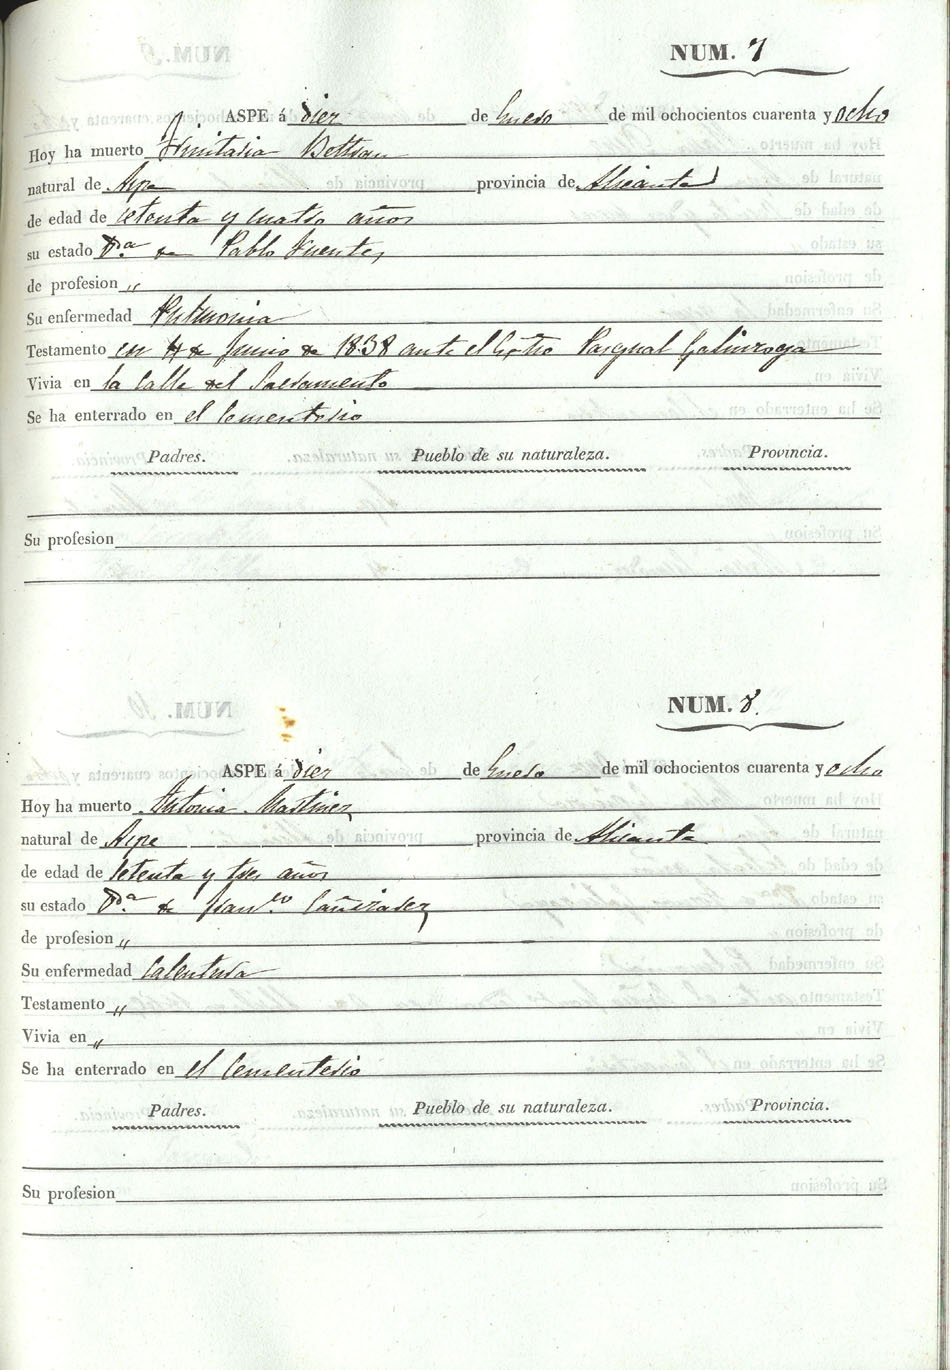 NUM. 7
ASPE á diez de Enero de mil ochocientos cuarenta y ocho
Hoy ha muerto Trinitaria Beltran
natural de Aspe provincia de Alicante
de edad de setenta y cuatro años
su estado Vda. de Pablo Fuentes
de profesion "
Su enfermedad Pulmonia
Testamento en 4 de Junio de 1838 ante el Esno Pasqual
Vivia en la Calle del Sacramento
Se ha enterrado en el Cementerio
Padres. Pueblo de su naturaleza. Provincia.
Su profesion
NUM. 8.
ASPE á diez de Enero de mil ochocientos cuarenta y ocho
Hoy ha muerto Antonia Martinez
natural de Aspe provincia de Alicante
de edad de setenta y tres años
su estado Vda. de Franco Cañizares
de profesion "
Su enfermedad Calentura
Testamento "
Vivia en "
Se ha enterrado en el Cementerio
Padres. Pueblo de su naturaleza. Provincia.
Su profesion